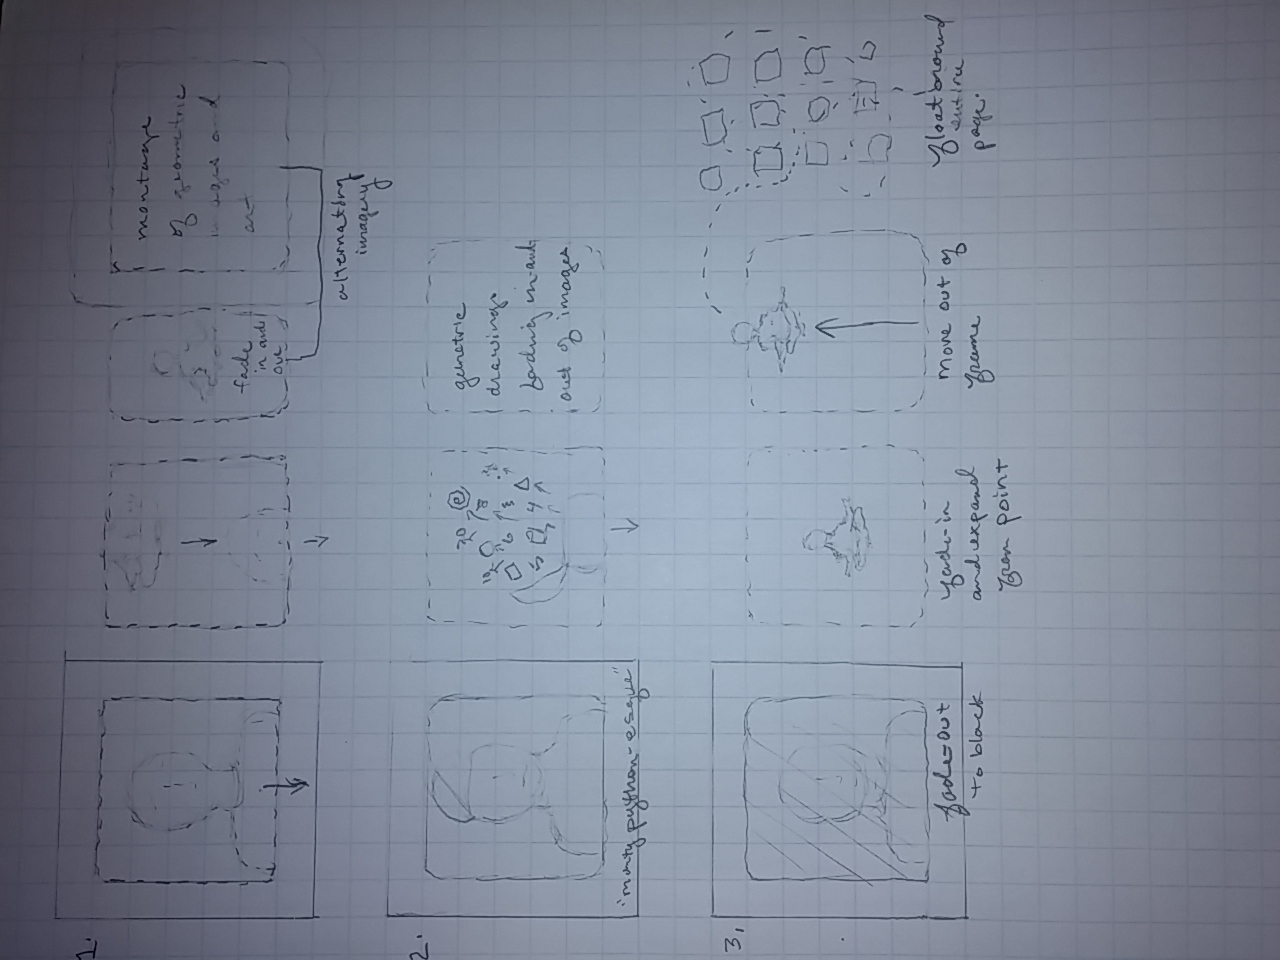 1.
fade
in and
out
montage
of geometric
images and
art
alternating
imagery
2.
"monty python-esque"
20
10
8
6
5
4
3
drawings
fading in-and-
out of images
3.
fade-out
to black
fade-in
and expand
from point
move out of
frame
float around
entire
page.